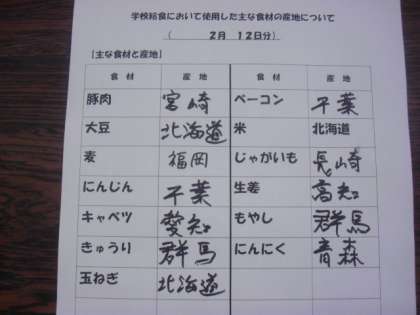 学校給食において使用した主な食材の産地について
( 2月 12日分)
[主な食材と産地]
食材 産地 食材 産地
豚肉 宮崎 ベーコン 千葉
大豆 北海道 米 北海道
麦 福岡 じゃがいも 長崎
にんじん 千葉 生姜 高知
キャベツ 愛知 もやし 群馬
きゅうり 群馬 にんにく 青森
玉ねぎ 北海道